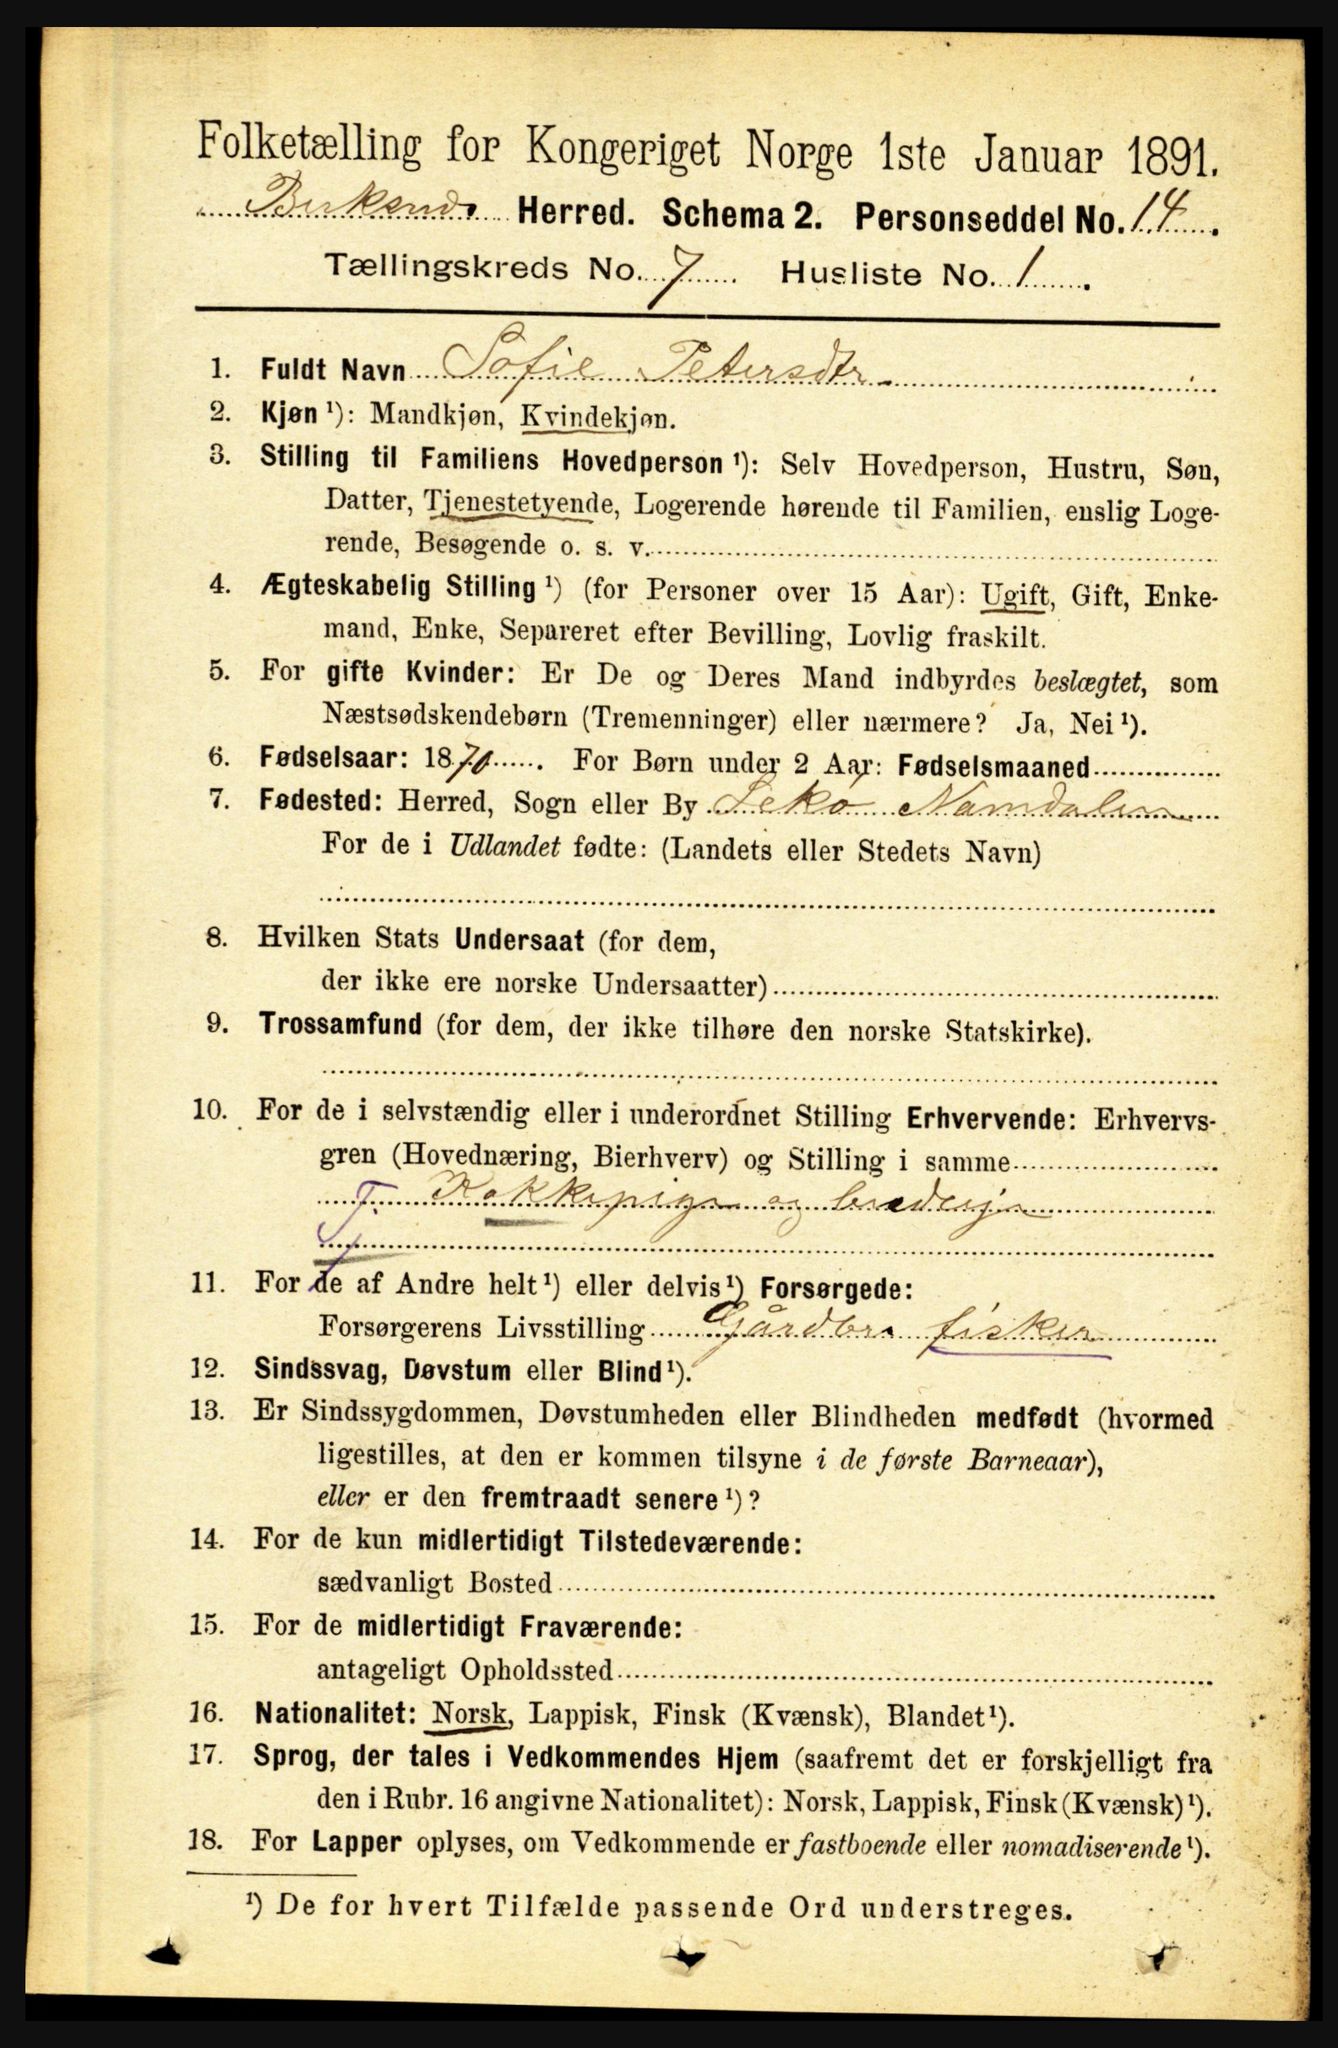 Folketælling for Kongeriget Norge 1ste Januar 1891.
Herred. Schema 2. Personseddel No. 14.
Tællingskreds No. 7. Husliste No. 1.
1. Fuldt Navn Sofie Petersdtr
2. Kjøn ¹): Mandkjøn, Kvindekjøn.
3. Stilling til Familiens Hovedperson ¹): Selv Hovedperson, Hustru, Søn,
Datter, Tjenestetyende, Logerende hørende til Familien, enslig Loge-
rende, Besøgende o. s. v.
4. Ægteskabelig Stilling ¹) (for Personer over 15 Aar): Ugift, Gift, Enke-
mand, Enke, Separeret efter Bevilling, Lovlig fraskilt.
5. For gifte Kvinder: Er De og Deres Mand indbyrdes beslægtet, som
Næstsødskendebørn (Tremenninger) eller nærmere? Ja, Nei ¹).
6. Fødselsaar: 1870. For Børn under 2 Aar: Fødselsmaaned
7. Fødested: Herred, Sogn eller By Lekø Namdalen
For de i Udlandet fødte: (Landets eller Stedets Navn)
8. Hvilken Stats Undersaat (for dem,
der ikke ere norske Undersaatter)
9. Trossamfund (for dem, der ikke tilhøre den norske Statskirke).
10. For de i selvstændig eller i underordnet Stilling Erhvervende: Erhvervs-
gren (Hovednæring, Bierhverv) og Stilling i samme
T. Kokkepige og
11. For de af Andre helt ¹) eller delvis ¹) Forsørgede:
Forsørgerens Livsstilling Gårdbr. fisker
12. Sindssvag, Døvstum eller Blind ¹).
13. Er Sindssygdommen, Døvstumheden eller Blindheden medfødt (hvormed
ligestilles, at den er kommen tilsyne i de første Barneaar),
eller er den fremtraadt senere ¹)?
14. For de kun midlertidigt Tilstedeværende:
sædvanligt Bosted
15. For de midlertidigt Fraværende:
antageligt Opholdssted
16. Nationalitet: Norsk, Lappisk, Finsk (Kvænsk), Blandet ¹).
17. Sprog, der tales i Vedkommendes Hjem (saafremt det er forskjelligt fra
den i Rubr. 16 angivne Nationalitet): Norsk, Lappisk, Finsk (Kvænsk) ¹).
18. For Lapper oplyses, om Vedkommende er fastboende eller nomadiserende ¹).
¹) De for hvert Tilfælde passende Ord understreges.